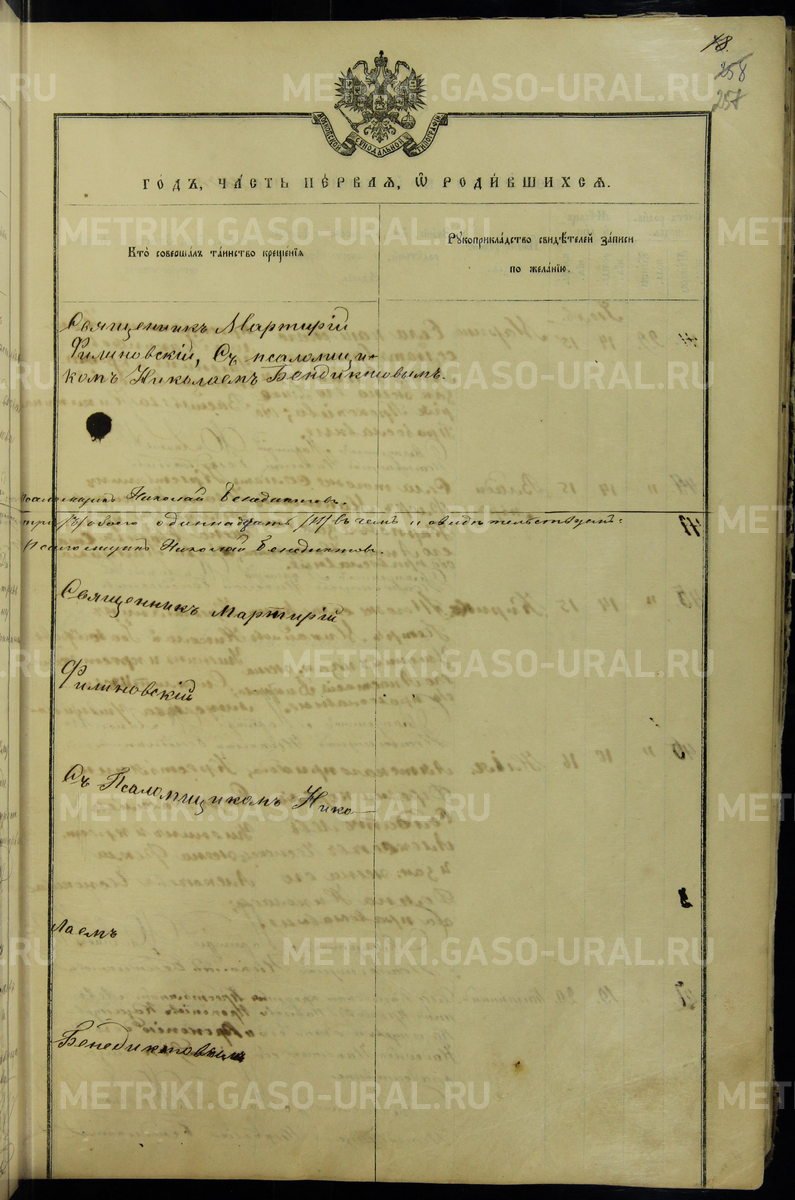 18.
258
257
МОСКОВСКОЙ СѴНОДАЛЬНОЙ ТИПОГРАФІИ
ГОДЪ, ЧАСТЬ ПЕРВАЯ, Ѿ РОДИВШИХСЯ.
Кто совершалъ таинство крещенія
Рукоприкладство свидѣтелей записи
по желанію.
Священникъ Мартирій
Филиновскій, Съ псаломщи-
комъ Николаемъ Бендиктовымъ.
Псаломщикъ Николай Бенедиктовъ.
три /3/ обоего одиннадцать /11/ въ чемъ и свидѣтельствуемъ:
Псаломщикъ Николай Бенедиктовъ.
Священникъ Мартирій
Филиновскій
Съ Псаломщикомъ Нико-
лаемъ
Бенедиктовымъ
METRIKI.GASO-URAL.RU